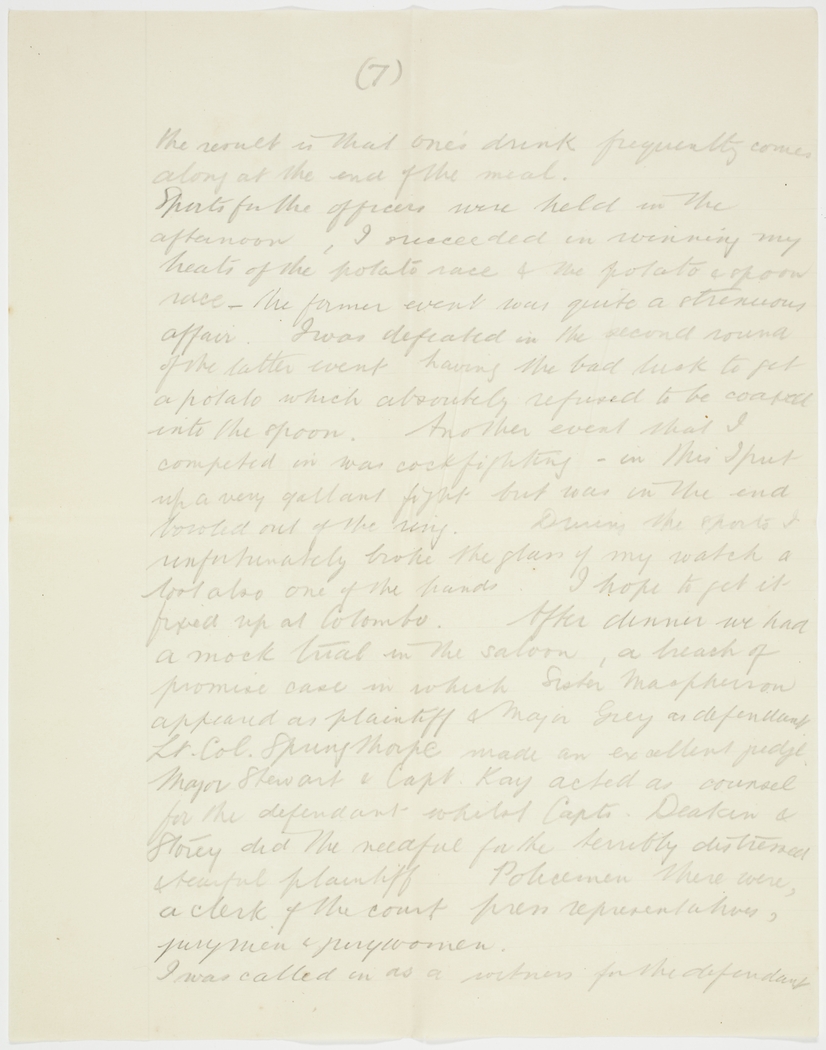 (7)
the result is that one's drink frequently comes
along at the end of the meal.
Sports for the officers were held in the
afternoon, I succeeded in winning my
heats of the potato race & the potato & spoon
race - the former event was quite a strenuous
affair. I was defeated in the second round
of the latter event having the bad luck to get
a potato which absolutely refused to be coaxed
into the spoon. Another event that I
competed in was cockfighting - in this I put
up a very gallant fight but was in the end
bowled out of the ring. During the sports I
unfortunately broke the glass of my watch &
lost also one of the hands. I hope to get it
fixed up at Colombo. After dinner we had
a mock trial in the saloon, a breach of
promise case in which Sister Macpherson
appeared as plaintiff & Major Grey as defendant
Lt. Col. Springthorpe made an excellent judge.
Major Stewart & Capt. Kay acted as counsel
for the defendant whilst Capts. Deakin &
Storey did the needful for the terribly distressed
& tearful plaintiff Policemen there were,
a clerk of the court press representatives,
jurymen & jurywomen.
I was called in as a witness for the defendant